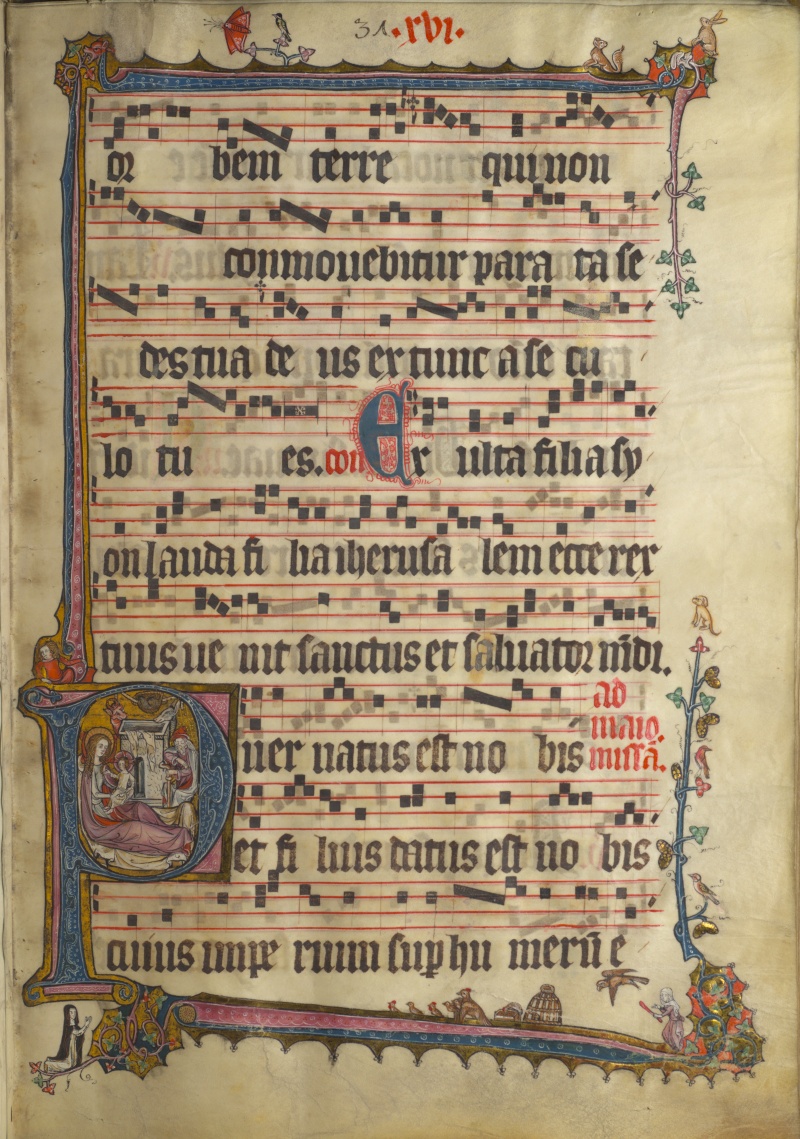 31 ·xvi·
or bem terre qui non
conmouebitur para ta se
des tua de us ex tunc a se cu
lo tu es. con Ex ulta filia sy
on lauda fi lia iherusa lem ecce rex
tuus ue nit sanctus et saluator mūdi.
Puer natus est no bis ad maio. missā.
et fi lius datus est no bis
cuius impe rium sup hu merū e